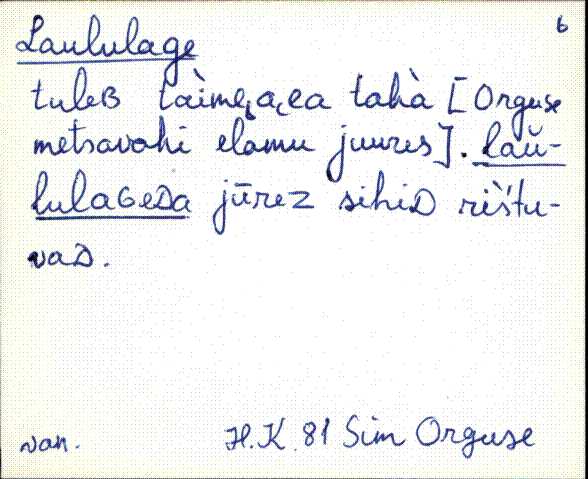 6
Laululage
tuleʙ tàimeaᴣa tahà [Orguse
metsavahi elamu juures]. laŭ-
lulaɢeᴅa jūrez sihiᴅ rìs̆tu-
vaᴅ.
van. H.K. 81 Sim Orguse